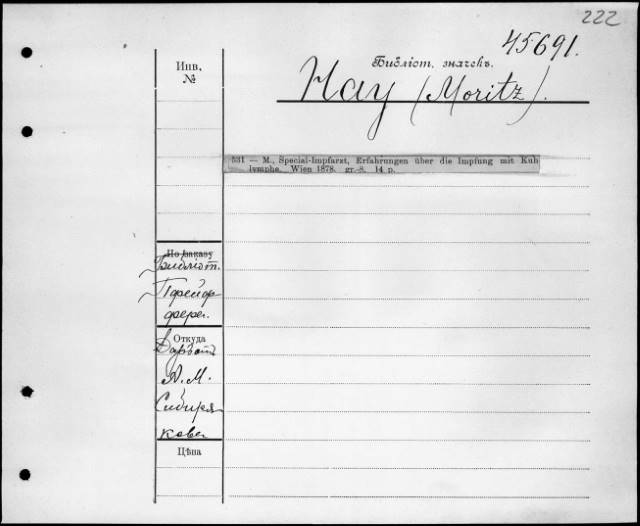 222
45691.
Инв.
№
Библіот. значекъ.
Hay (Moritz).
531 — M., Special-Impfarzt, Erfahrungen über die Impfung mit Kuh
lymphe. Wien 1878. gr.-8. 14 p.
По заказу
Библіот.
Пфейф
фера.
Откуда
Даръ
А. М.
Сибиря
кова
Цѣна